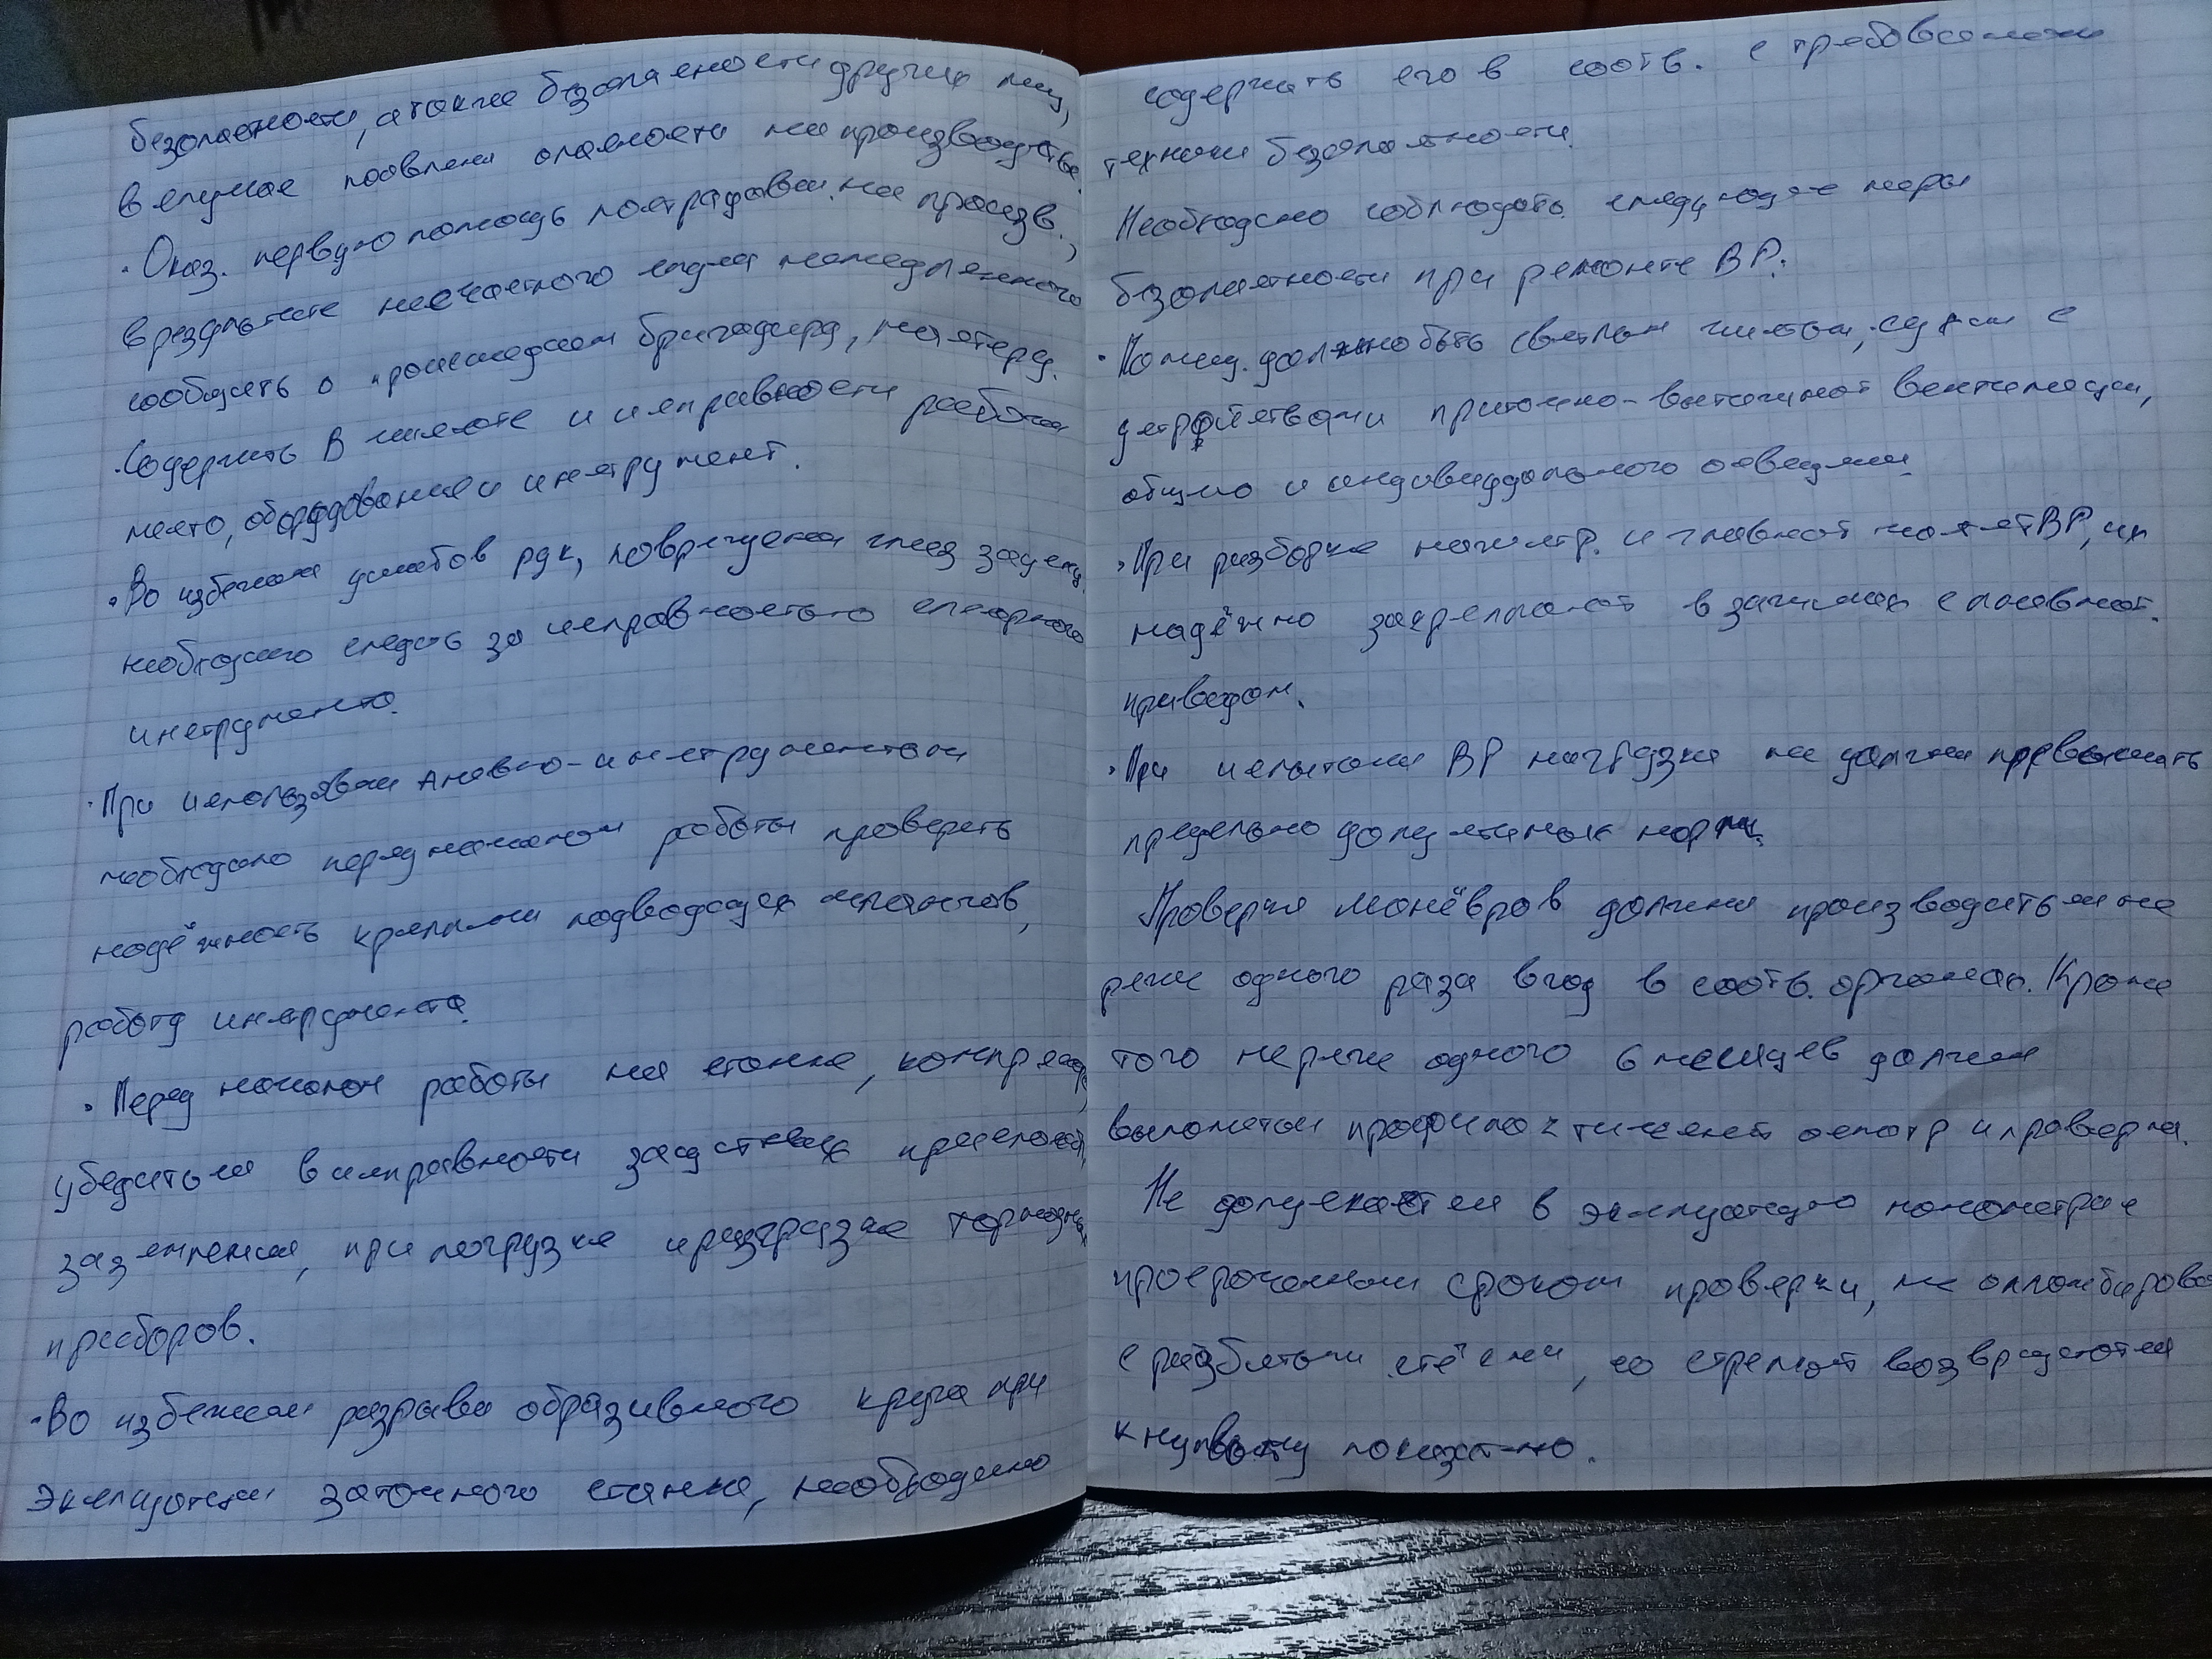 безопасности, а также безопасности других лиц,
в случае появлени опасности на производстве.
· Оказ. первую помощь пострадавш. на произв.,
в результате несчастного случа немедленного
сообщить о происшедшем бригадиру, мастеру.
· Содержить в чистоте и исправности рабочи
место, оборудование и инструмент.
· Во избежани ушибов рук, повреждени глаз
необходимо следить за исправностью слесарного
инструмента.
· При использовани пневмо-инструментом
необходимо перед началом работы проверить
надёжность креплени подводящих шлангов,
работу инструмента.
· Перед началом работы на станке,
убедиться в исправности защитных
заземления, при погрузке и разгрузке
приборов.
· Во избежани разрыва образивного круга при
эксплуатации заточного станка, необходимо
содержать его в соотв. с требованиями
техники безопасности.
Необходимо соблюдать следующие меры
безопасности при ремонте ВР:
· Помещ. должно быть светлым чистым, сухим с
устройствами приточно-вытяжной вентиляции,
общего и индивидуального освещени.
· При разборке магистр. и главной частей ВР, их
надёжно закрепляют в зажимах с пневмат.
приводом.
· При испытани ВР нагрузки не должны превышать
предельно допустимых норм.
Проверка манёвров должна производиться не
реже одного раза в год в соотв. органах. Кроме
того не реже одного 6 месяцев должен
выполняться профилактический осмотр и проверка.
Не допускается в эксплуатацию манометры с
просроченным сроком проверки, не опломбирова
с разбитыми стёклами, со стрелкой возвращаются
к нулевому показат-лю.